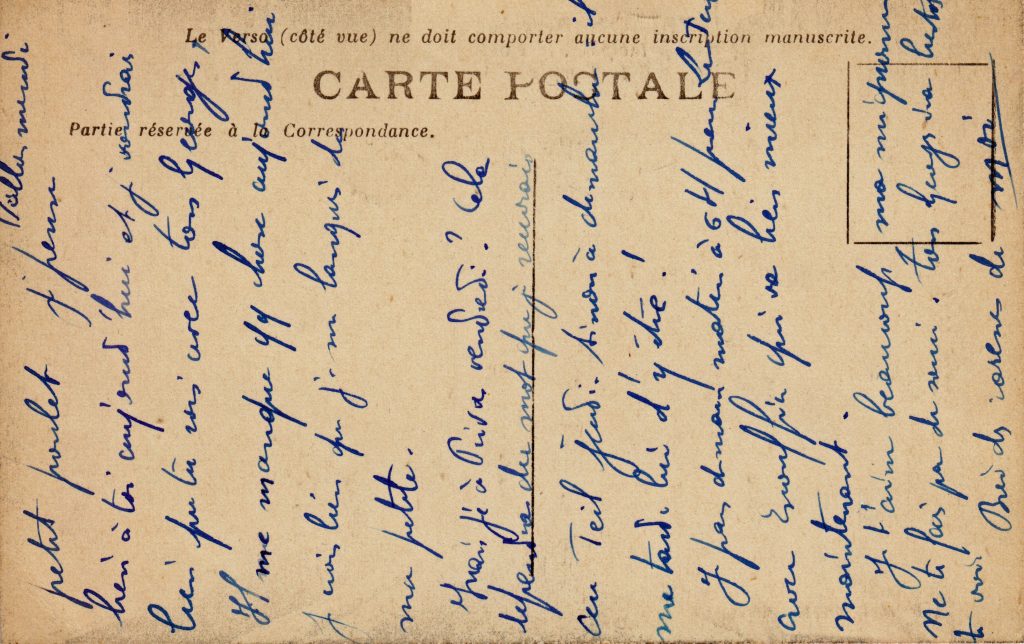 Le Verso (côté vue) ne doit comporter aucune inscription manuscrite.
CARTE POSTALE
Partie réservée à la Correspondance.
mardi
petit poulet j'pense
bien à toi aujourd'hui et j'voudrais
bien que tu sois avec ton Georges,
Il me manque qq chose aujourd'hui
J'crois bien que j'me languis de
ma petite.
Irai-je à Privas vendredi? Cela
dépendra du mot que j'recevrai
au Teil jeudi. Sinon à dimanche - il
me tarde bien d'y être!
J'pars demain matin à 6 H pour le Teil
avec qui va bien mieux
maintenant.
J't'aime beaucoup ma mignonne
Ne te fais pas de souci. Ton Georges va bientôt
te voir. Bien des caresses de moi